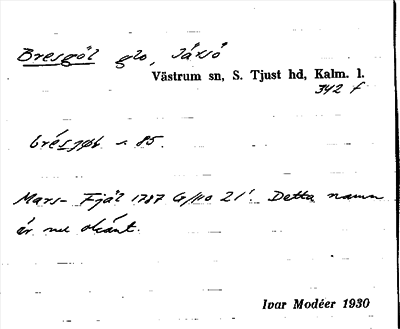 Bresgöl glo, Jåxsö
Västrum sn, S. Tjust hd, Kalm. l.
342 f
85.
Mars- Fjäl 1787 21'. Detta namn
är nu okänt.
Ivar Modéer 1930